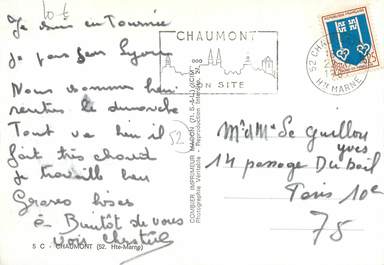 10 f
Je suis en Tournée
Je pars pour Lyon
Nous sommes bien
rentrés le dimanche
Tout va bien il
fait très chaud
Je travaille bien
Grosses bises
à Bientôt de vous
voir
S C - CHAUMONT (52. Hte-Marne)
52
COMBIER IMPRIMEUR MACON (71. S.-&-L.) "CIM"
Photographie Véritable - Reproduction Interdite
CHAUMONT
SON SITE
52
Hte MARNE
Mr & Mme Le Guillou
yves
14 passage Du Bail
Paris 10e
75